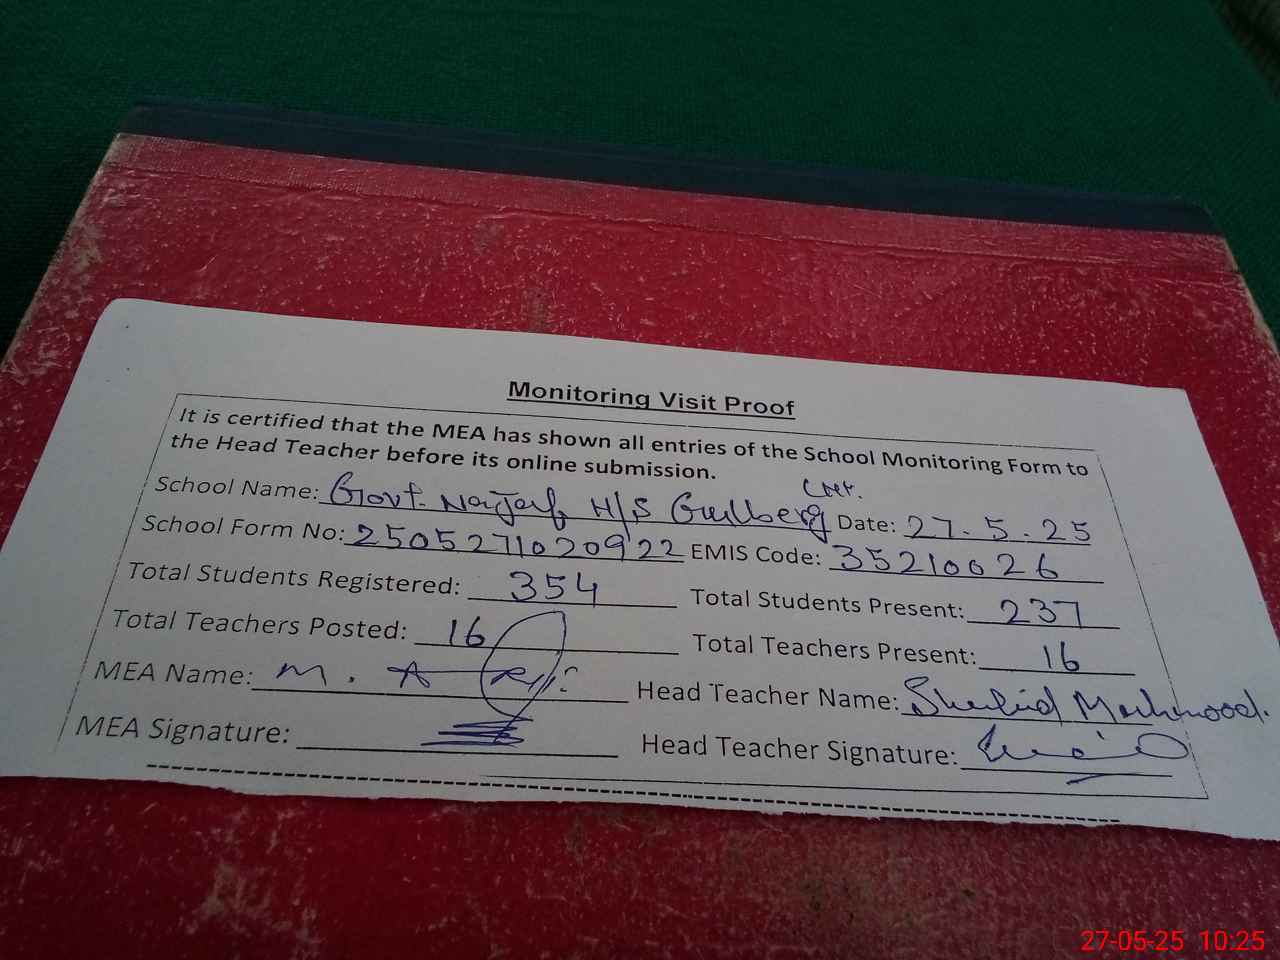 Monitoring Visit Proof
It is certified that the MEA has shown all entries of the School Monitoring Form to
the Head Teacher before its online submission.
School Name: Govt. H/S Gulberg Date: 27.5.25
School Form No: 2505271020922 EMIS Code: 35210026
Total Students Registered: 354 Total Students Present: 237
Total Teachers Posted: 16 Total Teachers Present: 16
MEA Name: M. A Head Teacher Name: Shahid Mahmood.
MEA Signature: Head Teacher Signature:
27-05-25 10:25